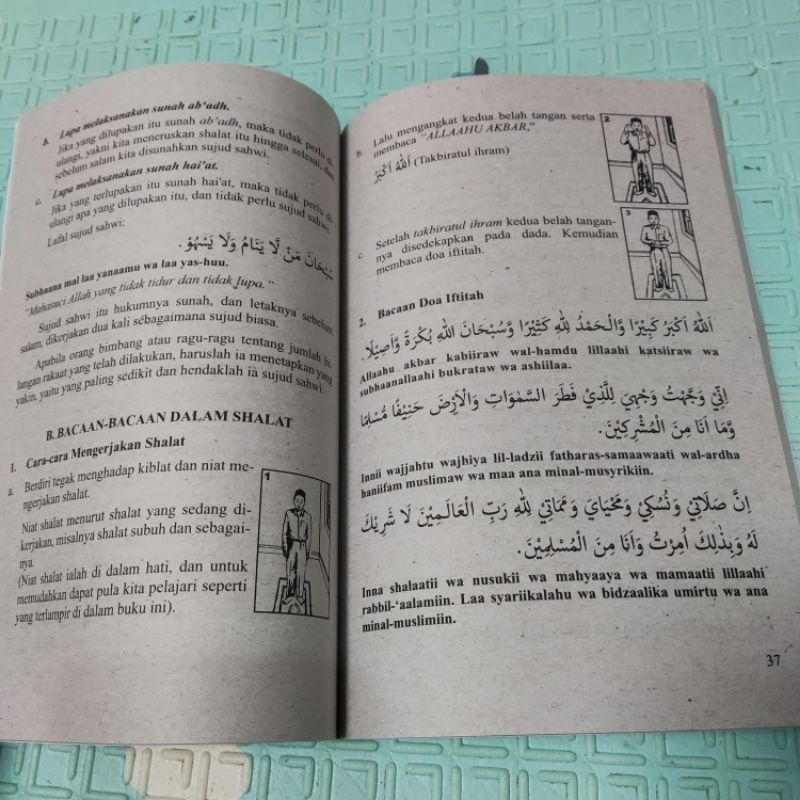 b. Lupa melaksanakan sunah ab'adh.
Jika yang dilupakan itu sunah ab'adh, maka tidak perlu di-
ulangi, yakni kita meneruskan shalat itu hingga selesai, dan
sebelum salam kita disunahkan sujud sahwi.
c. Lupa melaksanakan sunah hai'at.
Jika yang terlupakan itu sunah hai'at, maka tidak perlu di-
ulangi apa yang dilupakan itu, dan tidak perlu sujud sahwi.
Lafal sujud sahwi:
سُبْحَانَ مَنْ لَّا يَنَامُ وَلَا يَسْهُوْ.
Subhaana mal laa yanaamu wa laa yas-huu.
"Mahasuci Allah yang tidak tidur dan tidak lupa."
Sujud sahwi itu hukumnya sunah, dan letaknya sebelum
salam, dikerjakan dua kali sebagaimana sujud biasa.
Apabila orang bimbang atau ragu-ragu tentang jumlah bi-
langan rakaat yang telah dilakukan, haruslah ia menetapkan yang
yakin, yaitu yang paling sedikit dan hendaklah ia sujud sahwi.
B. BACAAN-BACAAN DALAM SHALAT
1. Cara-cara Mengerjakan Shalat
a. Berdiri tegak menghadap kiblat dan niat me-
ngerjakan shalat.
Niat shalat menurut shalat yang sedang di-
kerjakan, misalnya shalat subuh dan sebagai-
nya.
(Niat shalat ialah di dalam hati, dan untuk
memudahkan dapat pula kita pelajari seperti
yang terlampir di dalam buku ini).
1
b. Lalu mengangkat kedua belah tangan serta
membaca "ALLAAHU AKBAR,"
اَللهُ اَكْبَرُ (Takbiratul ihram)
2
c. Setelah takbiratul ihram kedua belah tangan-
nya disedekapkan pada dada. Kemudian
membaca doa iftitah.
3
2. Bacaan Doa Iftitah
اَللهُ اَكْبَرُ كَبِيْرًا وَّالْحَمْدُ لِلهِ كَثِيْرًا وَّسُبْحَانَ اللهِ بُكْرَةً وَّاَصِيْلًا.
Allaahu akbar kabiiraw wal-hamdu lillaahi katsiiraw wa
subhaanallaahi bukrataw wa ashiilaa.
اِنِّيْ وَجَّهْتُ وَجْهِيَ لِلَّذِيْ فَطَرَ السَّمٰوَاتِ وَالْاَرْضَ حَنِيْفًا مُّسْلِمًا
وَّمَا اَنَا مِنَ الْمُشْرِكِيْنَ.
Innii wajjahtu wajhiya lil-ladzii fatharas-samaawaati wal-ardha
haniifam muslimaw wa maa ana minal-musyrikiin.
اِنَّ صَلَاتِيْ وَنُسُكِيْ وَمَحْيَايَ وَمَمَاتِيْ لِلهِ رَبِّ الْعَالَمِيْنَ لَا شَرِيْكَ
لَهُ وَبِذٰلِكَ اُمِرْتُ وَاَنَا مِنَ الْمُسْلِمِيْنَ.
Inna shalaatii wa nusukii wa mahyaaya wa mamaatii lillaahi
rabbil-'aalamiin. Laa syariikalahu wa bidzaalika umirtu wa ana
minal-muslimiin.
37